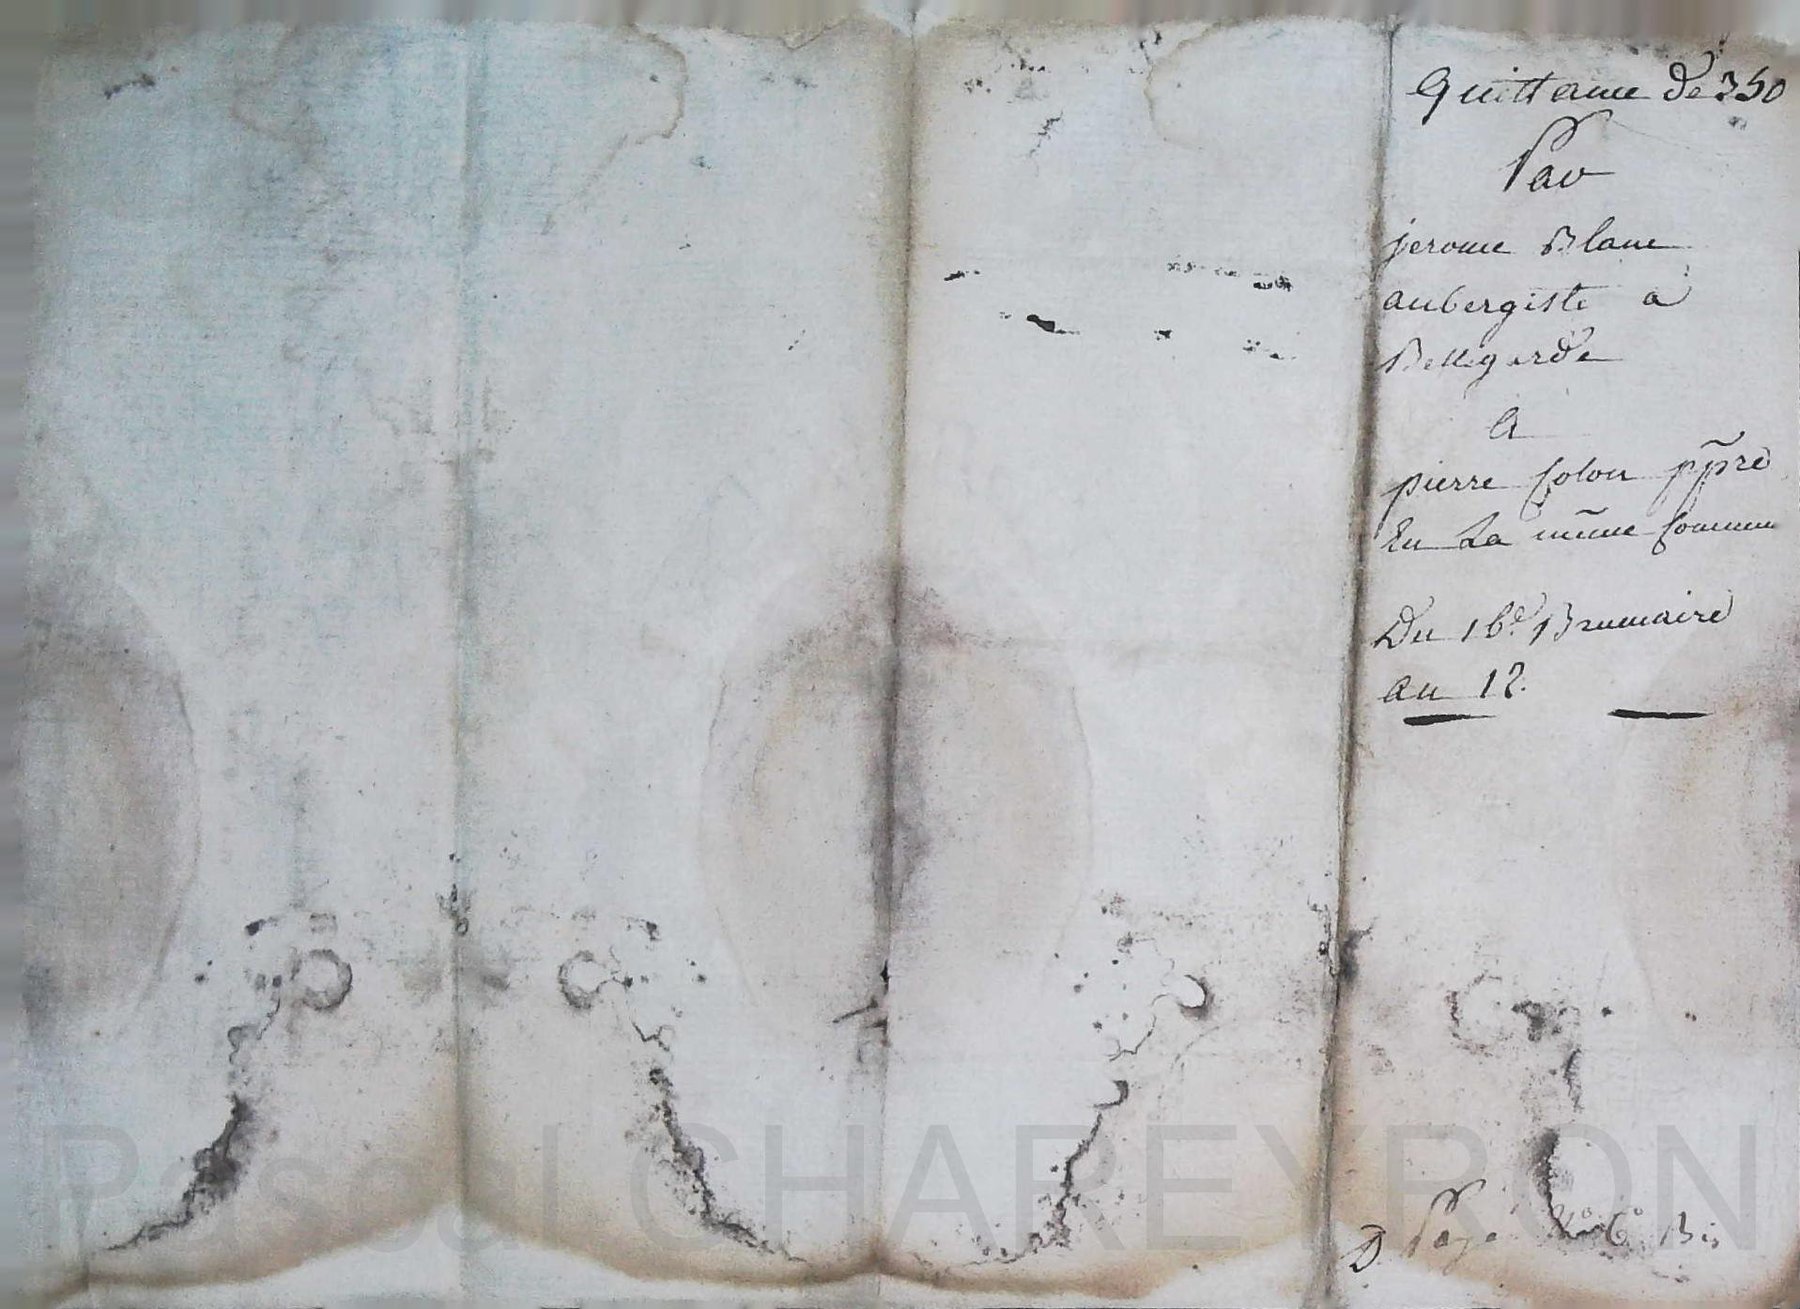 Quittance de 350
Par
jerome Blanc
aubergiste a
Bellegarde
A
pierre Colon pp̃re
En La mẽme Commune
Du 16e Brumaire
an 12.
D. Payé No 6o Bis
Pascal CHAREYRON